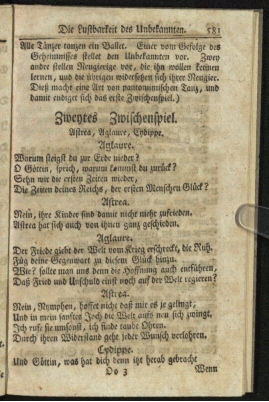 Die Lustbarkeit des Unbekannten. 581
Alle Tänzer tanzen ein Ballet. Einer vom Gefolge des
Geheimnisses stellet den Unbekannten vor. Zwey
andre stellen Neugierige vor, die ihn wollen kennen
lernen, und die übrigen widersetzen sich ihrer Neugier.
Dieß macht eine Art von pantomimischen Tanz, und
damit endiget sich das erste Zwischenspiel.)
Zweytes Zwischenspiel.
Astrea, Aglaure, Cydippe.
Aglaure.
Warum steigst du zur Erde nieder?
O Göttin, sprich, warum kommst du zurück?
Sehn wir die ersten Zeiten wieder,
Die Zeiten deines Reichs, der ersten Menschen Glück?
Astrea.
Nein, ihre Kinder sind damit nicht mehr zufrieden.
Astrea hat sich auch von ihnen ganz geschieden.
Aglaure.
Der Friede giebt der Welt vom Krieg erschreckt, die Ruh.
Füg deine Gegenwart zu diesem Glück hinzu.
Wie? sollte man uns denn die Hoffnung auch entführen,
Daß Fried und Unschuld einst noch auf der Welt regieren?
Astrea.
Nein, Nymphen, hoffet nicht daß mir es je gelingt,
Und in mein sanftes Joch die Welt aufs neu sich zwingt.
Ich rufe sie umsonst, ich finde taube Ohren.
Durch ihren Widerstand geht jeder Wunsch verlohren.
Cydippe.
Und Göttin, was hat dich denn itzt herab gebracht
Oo 3 Wenn